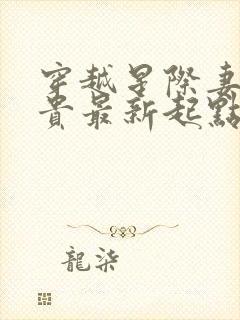 穿越星際妻
貴最新起點
龍柒